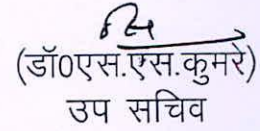 (डॉ0एस.एस.कुमरे)
उप सचिव